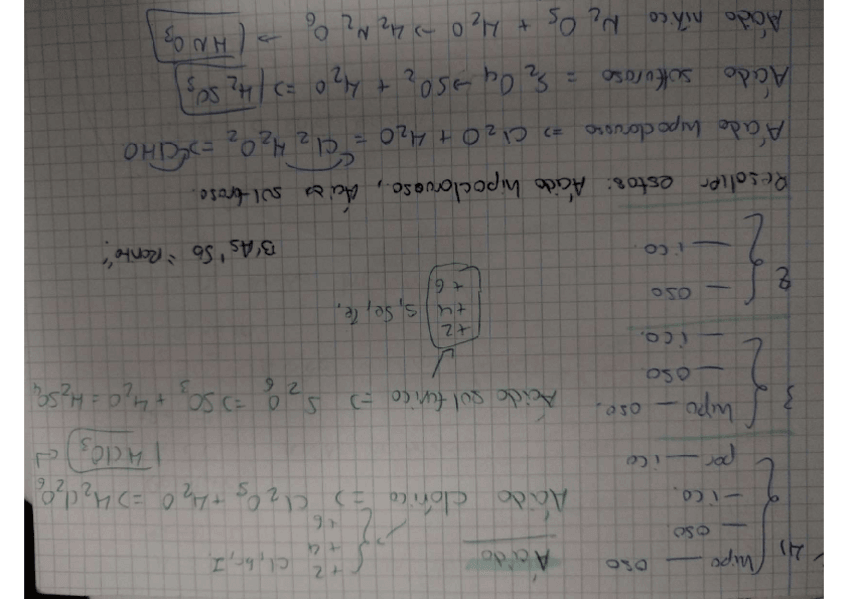 4) hipo — oso
— oso
— ico.
per — ico
Ácido
+2
+4
+6
Cl, Br, I.
Ácido clórico => Cl2O5 + H2O => H2Cl2O6
HClO3
3 hipo — oso.
— oso.
— ico.
Ácido sulfúrico => S2O6 => SO3 + H2O = H2SO4
+2
+4
+6
S, Se, Te,
2 — oso
— ico.
B, As, Sb
Resolver estos: Ácido hipocloroso, Ácido sulfuroso.
Ácido hipocloroso => Cl2O + H2O = Cl2H2O2 => ClHO
Ácido sulfuroso = S2O4 -> SO2 + H2O => H2SO3
Ácido nítrico N2O5 + H2O -> H2N2O6 -> HNO3